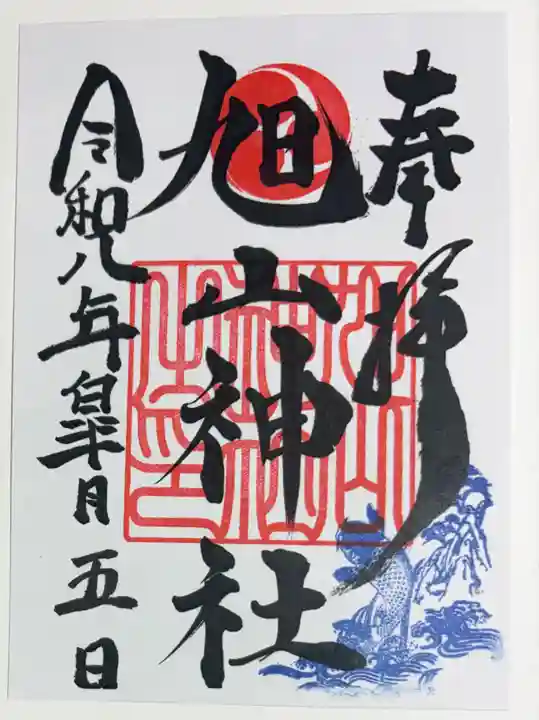 奉拝
旭山神社
令和八年皐月五日